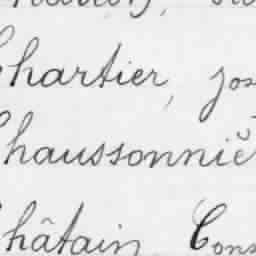 Chartier, Jos
Chaussonniè
Châtain, Cons